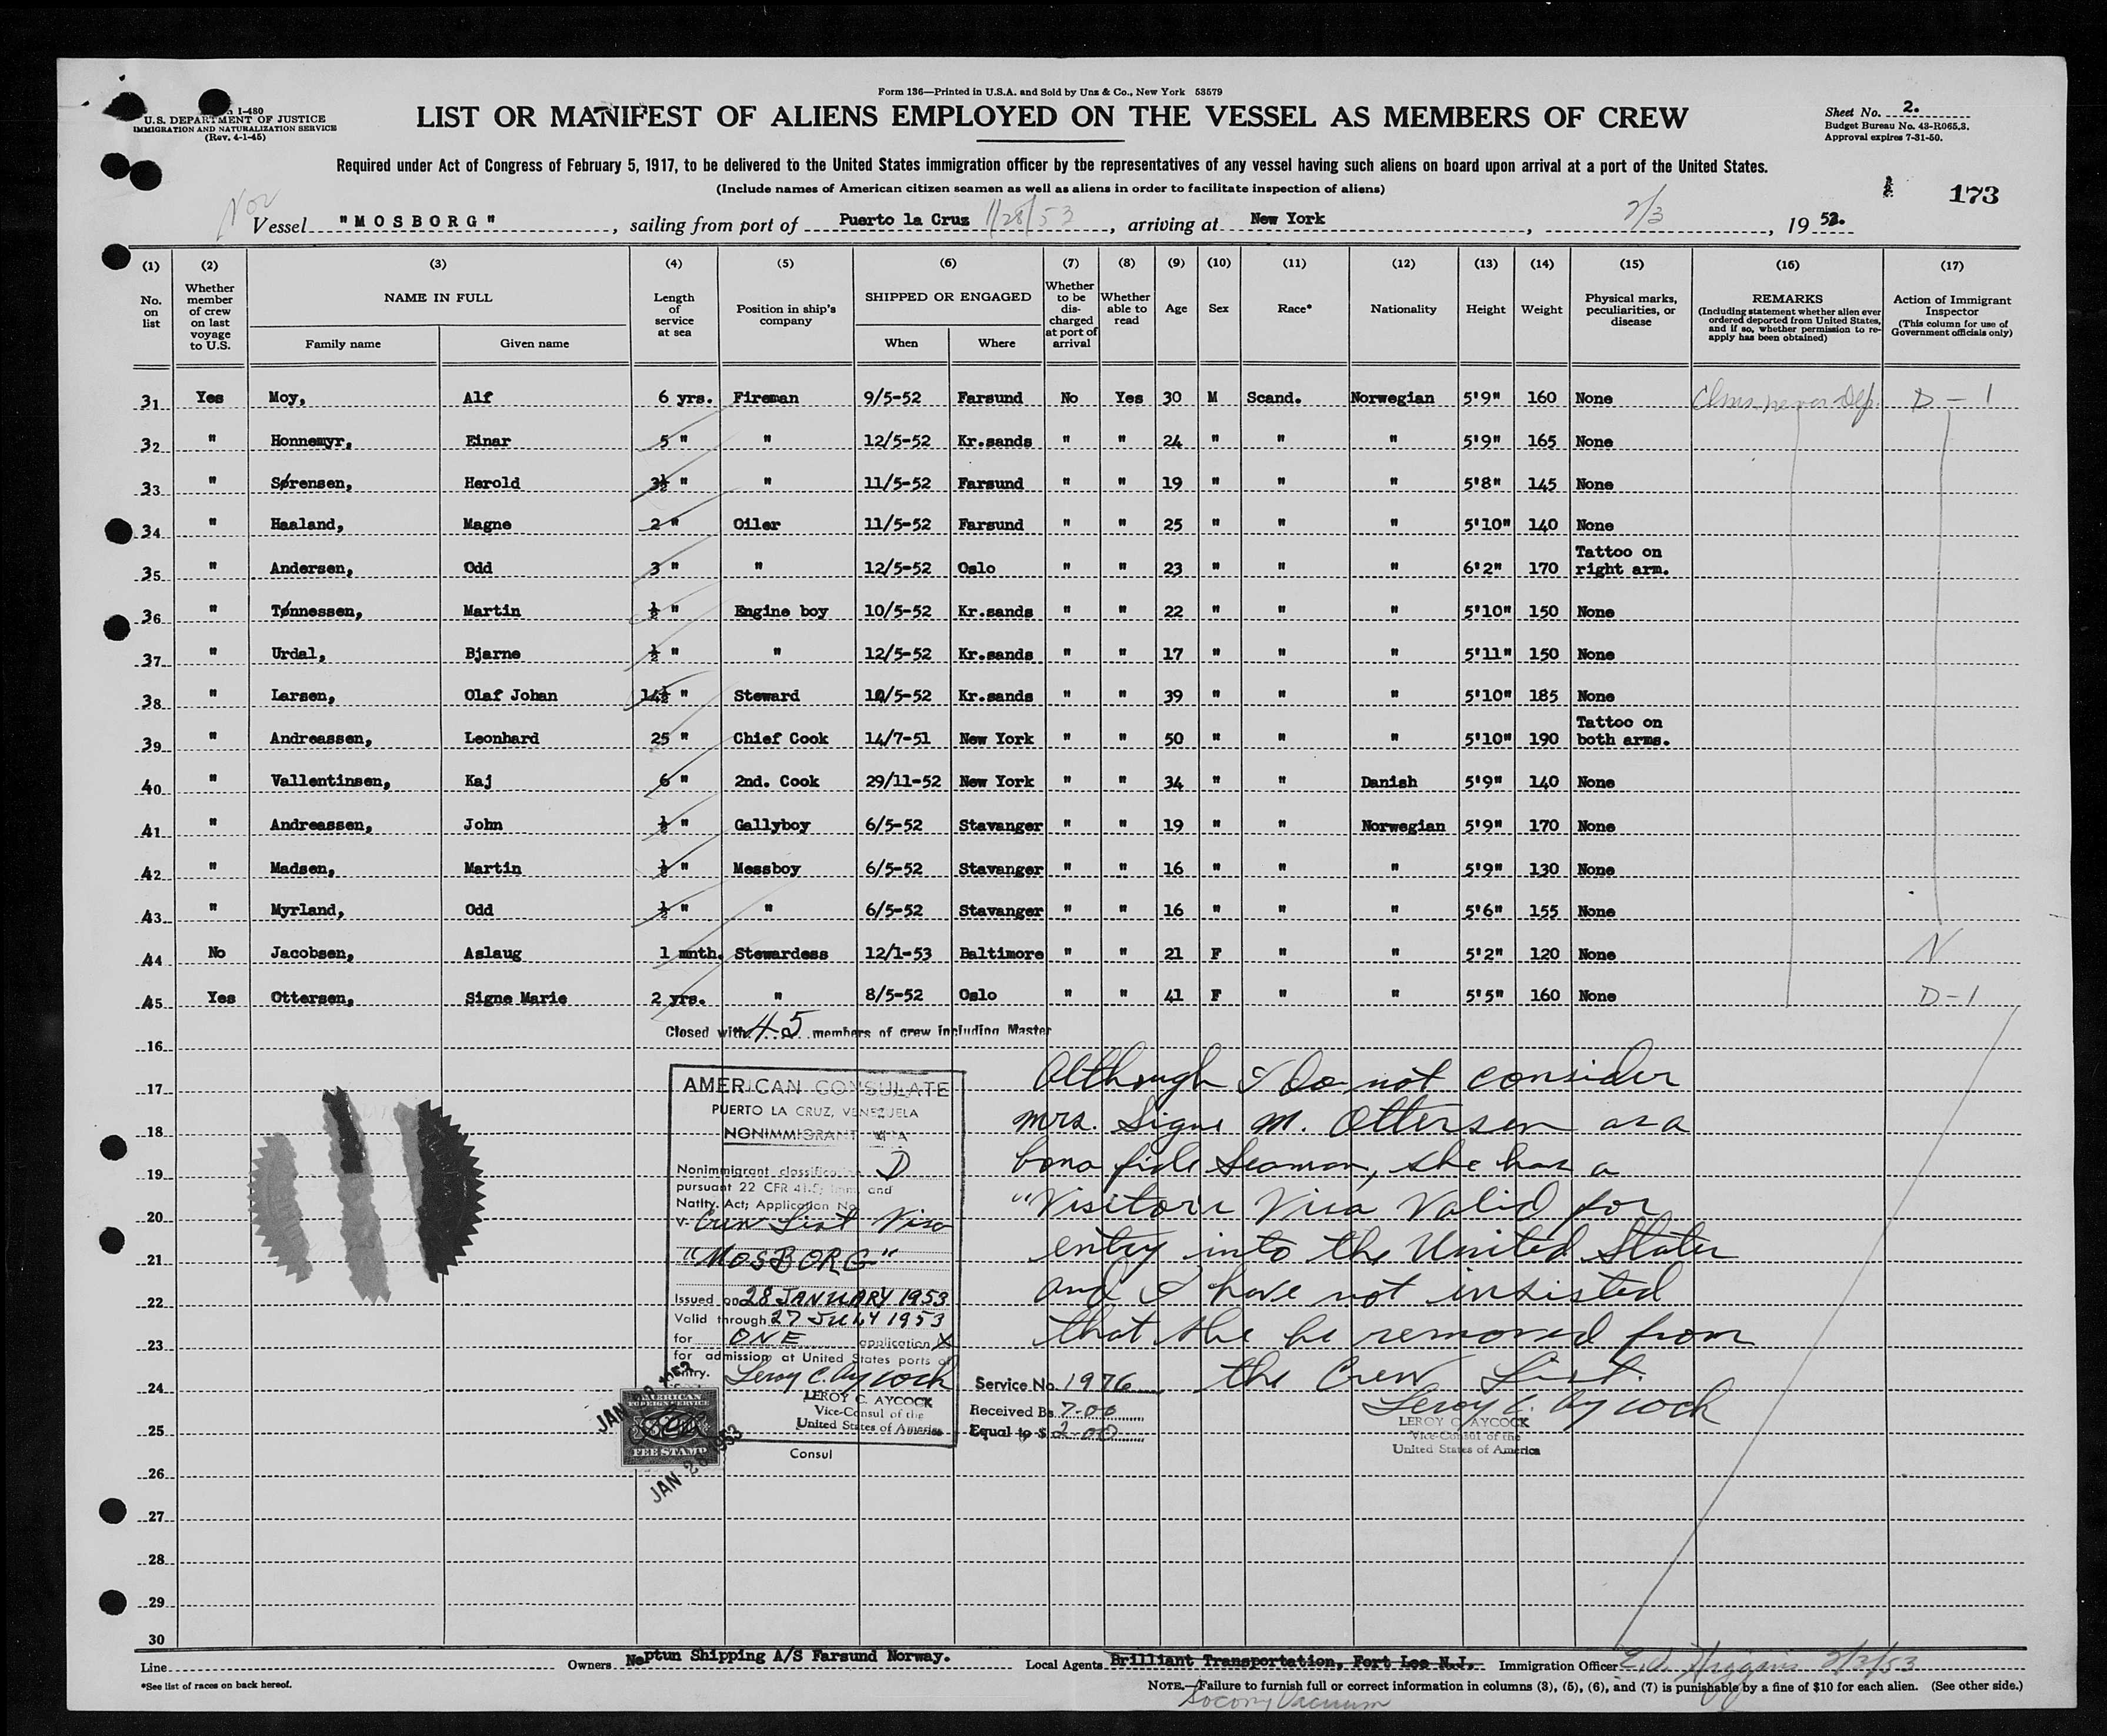 Form 136—Printed in U.S.A. and Sold by Unz & Co., New York 53579
I-480
U.S. DEPARTMENT OF JUSTICE
IMMIGRATION AND NATURALIZATION SERVICE
(Rev. 4-1-45)
LIST OR MANIFEST OF ALIENS EMPLOYED ON THE VESSEL AS MEMBERS OF CREW
Sheet No. 2.
Budget Bureau No. 43-R065.3.
Approval expires 7-31-50.
Required under Act of Congress of February 5, 1917, to be delivered to the United States immigration officer by the representatives of any vessel having such aliens on board upon arrival at a port of the United States.
(Include names of American citizen seamen as well as aliens in order to facilitate inspection of aliens)
173
Nor
Vessel "MOSBORG", sailing from port of Puerto la Cruz 1/28/53, arriving at New York, 2/3, 1953.
(1) (2) (3) (4) (5) (6) (7) (8) (9) (10) (11) (12) (13) (14) (15) (16) (17)
No. on list
Whether member of crew on last voyage to U.S.
NAME IN FULL
Family name
Given name
Length of service at sea
Position in ship's company
SHIPPED OR ENGAGED
When
Where
Whether to be discharged at port of arrival
Whether able to read
Age
Sex
Race*
Nationality
Height
Weight
Physical marks, peculiarities, or disease
REMARKS
(Including statement whether alien ever ordered deported from United States, and if so, whether permission to re-apply has been obtained)
Action of Immigrant Inspector
(This column for use of Government officials only)
31 Yes Moy, Alf 6 yrs. Fireman 9/5-52 Farsund No Yes 30 M Scand. Norwegian 5'9" 160 None Clms never Dep. D-1
32 " Honnemyr, Einar 5 " " 12/5-52 Kr.sands " " 24 " " " 5'9" 165 None
33 " Sørensen, Herold 3½ " " 11/5-52 Farsund " " 19 " " " 5'8" 145 None
34 " Haaland, Magne 2 " Oiler 11/5-52 Farsund " " 25 " " " 5'10" 140 None
35 " Andersen, Odd 3 " " 12/5-52 Oslo " " 23 " " " 6'2" 170 Tattoo on right arm.
36 " Tønnessen, Martin ½ " Engine boy 10/5-52 Kr.sands " " 22 " " " 5'10" 150 None
37 " Urdal, Bjarne ½ " " 12/5-52 Kr.sands " " 17 " " " 5'11" 150 None
38 " Larsen, Olaf Johan 14½ " Steward 10/5-52 Kr.sands " " 39 " " " 5'10" 185 None
39 " Andreassen, Leonhard 25 " Chief Cook 14/7-51 New York " " 50 " " " 5'10" 190 Tattoo on both arms.
40 " Vallentinsen, Kaj 6 " 2nd. Cook 29/11-52 New York " " 34 " " Danish 5'9" 140 None
41 " Andreassen, John ½ " Gallyboy 6/5-52 Stavanger " " 19 " " Norwegian 5'9" 170 None
42 " Madsen, Martin ½ " Messboy 6/5-52 Stavanger " " 16 " " " 5'9" 130 None
43 " Myrland, Odd ½ " " 6/5-52 Stavanger " " 16 " " " 5'6" 155 None
44 No Jacobsen, Aslaug 1 mnth. Stewardess 12/1-53 Baltimore " " 21 F " " 5'2" 120 None N
45 Yes Ottersen, Signe Marie 2 yrs. " 8/5-52 Oslo " " 41 F " " 5'5" 160 None D-1
Closed with 45 members of crew including Master
16
17
18
19
20
21
22
23
24
25
26
27
28
29
30
AMERICAN CONSULATE
PUERTO LA CRUZ, VENEZUELA
NONIMMIGRANT VISA
Nonimmigrant classification D
pursuant 22 CFR 41.5; Imm. and
Natlty. Act; Application No.
V- Crew List Visa
"MOSBORG"
Issued on 28 JANUARY 1953
Valid through 27 JULY 1953
for ONE application X
for admission at United States ports of
entry.
Leroy C. Aycock
LEROY C. AYCOCK
Vice-Consul of the
United States of America
Consul
AMERICAN
FOREIGN SERVICE
FEE STAMP
JAN 28 1953
JAN 28 1953
Service No. 1976
Received Bs. 7.00
Equal to $ 2.00
Although I do not consider
Mrs. Signe M. Ottersen as a
bona fide Seaman, she has a
"Visitors Visa Valid for
entry into the United States
and I have not insisted
that she be removed from
the Crew List.
Leroy C. Aycock
LEROY C. AYCOCK
Vice-Consul of the
United States of America
Line
Owners Neptun Shipping A/S Farsund Norway.
Local Agents Brilliant Transportation, Fort Lee N.J.
Socony Vacuum
Immigration Officer Higgins 2/3/53
*See list of races on back hereof.
NOTE.—Failure to furnish full or correct information in columns (3), (5), (6), and (7) is punishable by a fine of $10 for each alien. (See other side.)